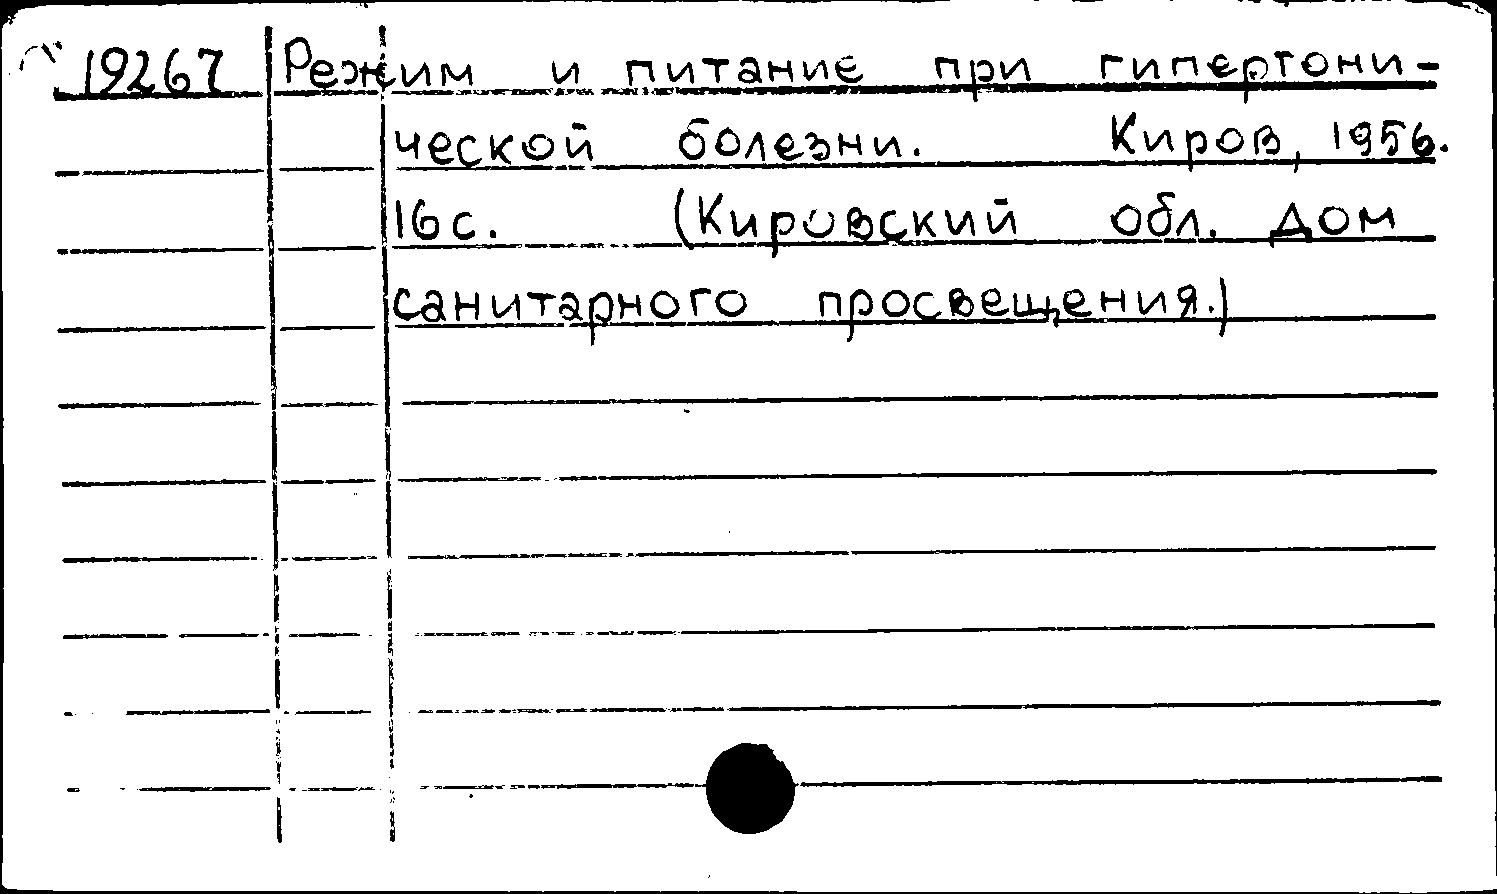 19267 Режим и питание при гипертони-
ческой болезни. Киров, 1956.
16 с. (Кировский обл. дом
санитарного просвещения.)